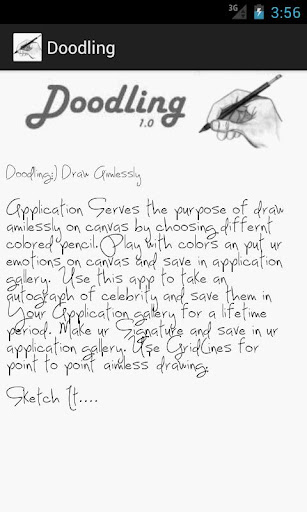 3G 3:56
Doodling
Doodling
1.0
Doodling:) Draw Aimlessly
Application Serves the purpose of draw
amilessly on canvas by choosing differnt
colored pencil. Play with colors an put ur
emotions on canvas and save in application
gallery. Use this app to take an
autograph of celebrity and save them in
Your Application gallery for a lifetime
period. Make ur Signature and save in ur
application gallery. Use GridLines for
point to point aimless drawing.
Sketch It....